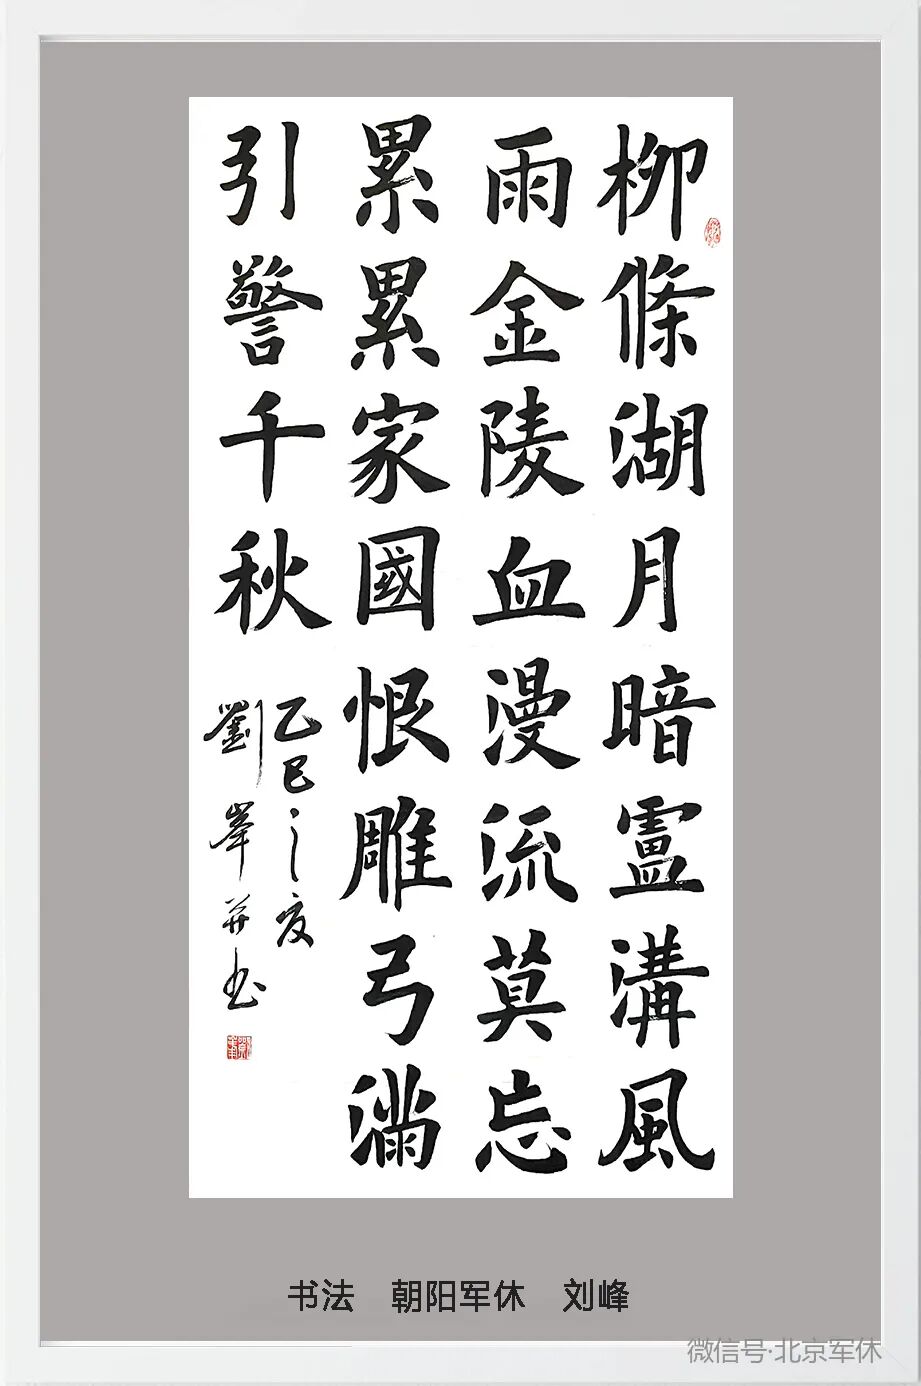 柳條湖月暗盧溝風
雨金陵血漫流莫忘
累累家國恨雕弓滿
引警千秋
乙巳之夏
劉峯并书
书法 朝阳军休 刘峰
微信号·北京军休